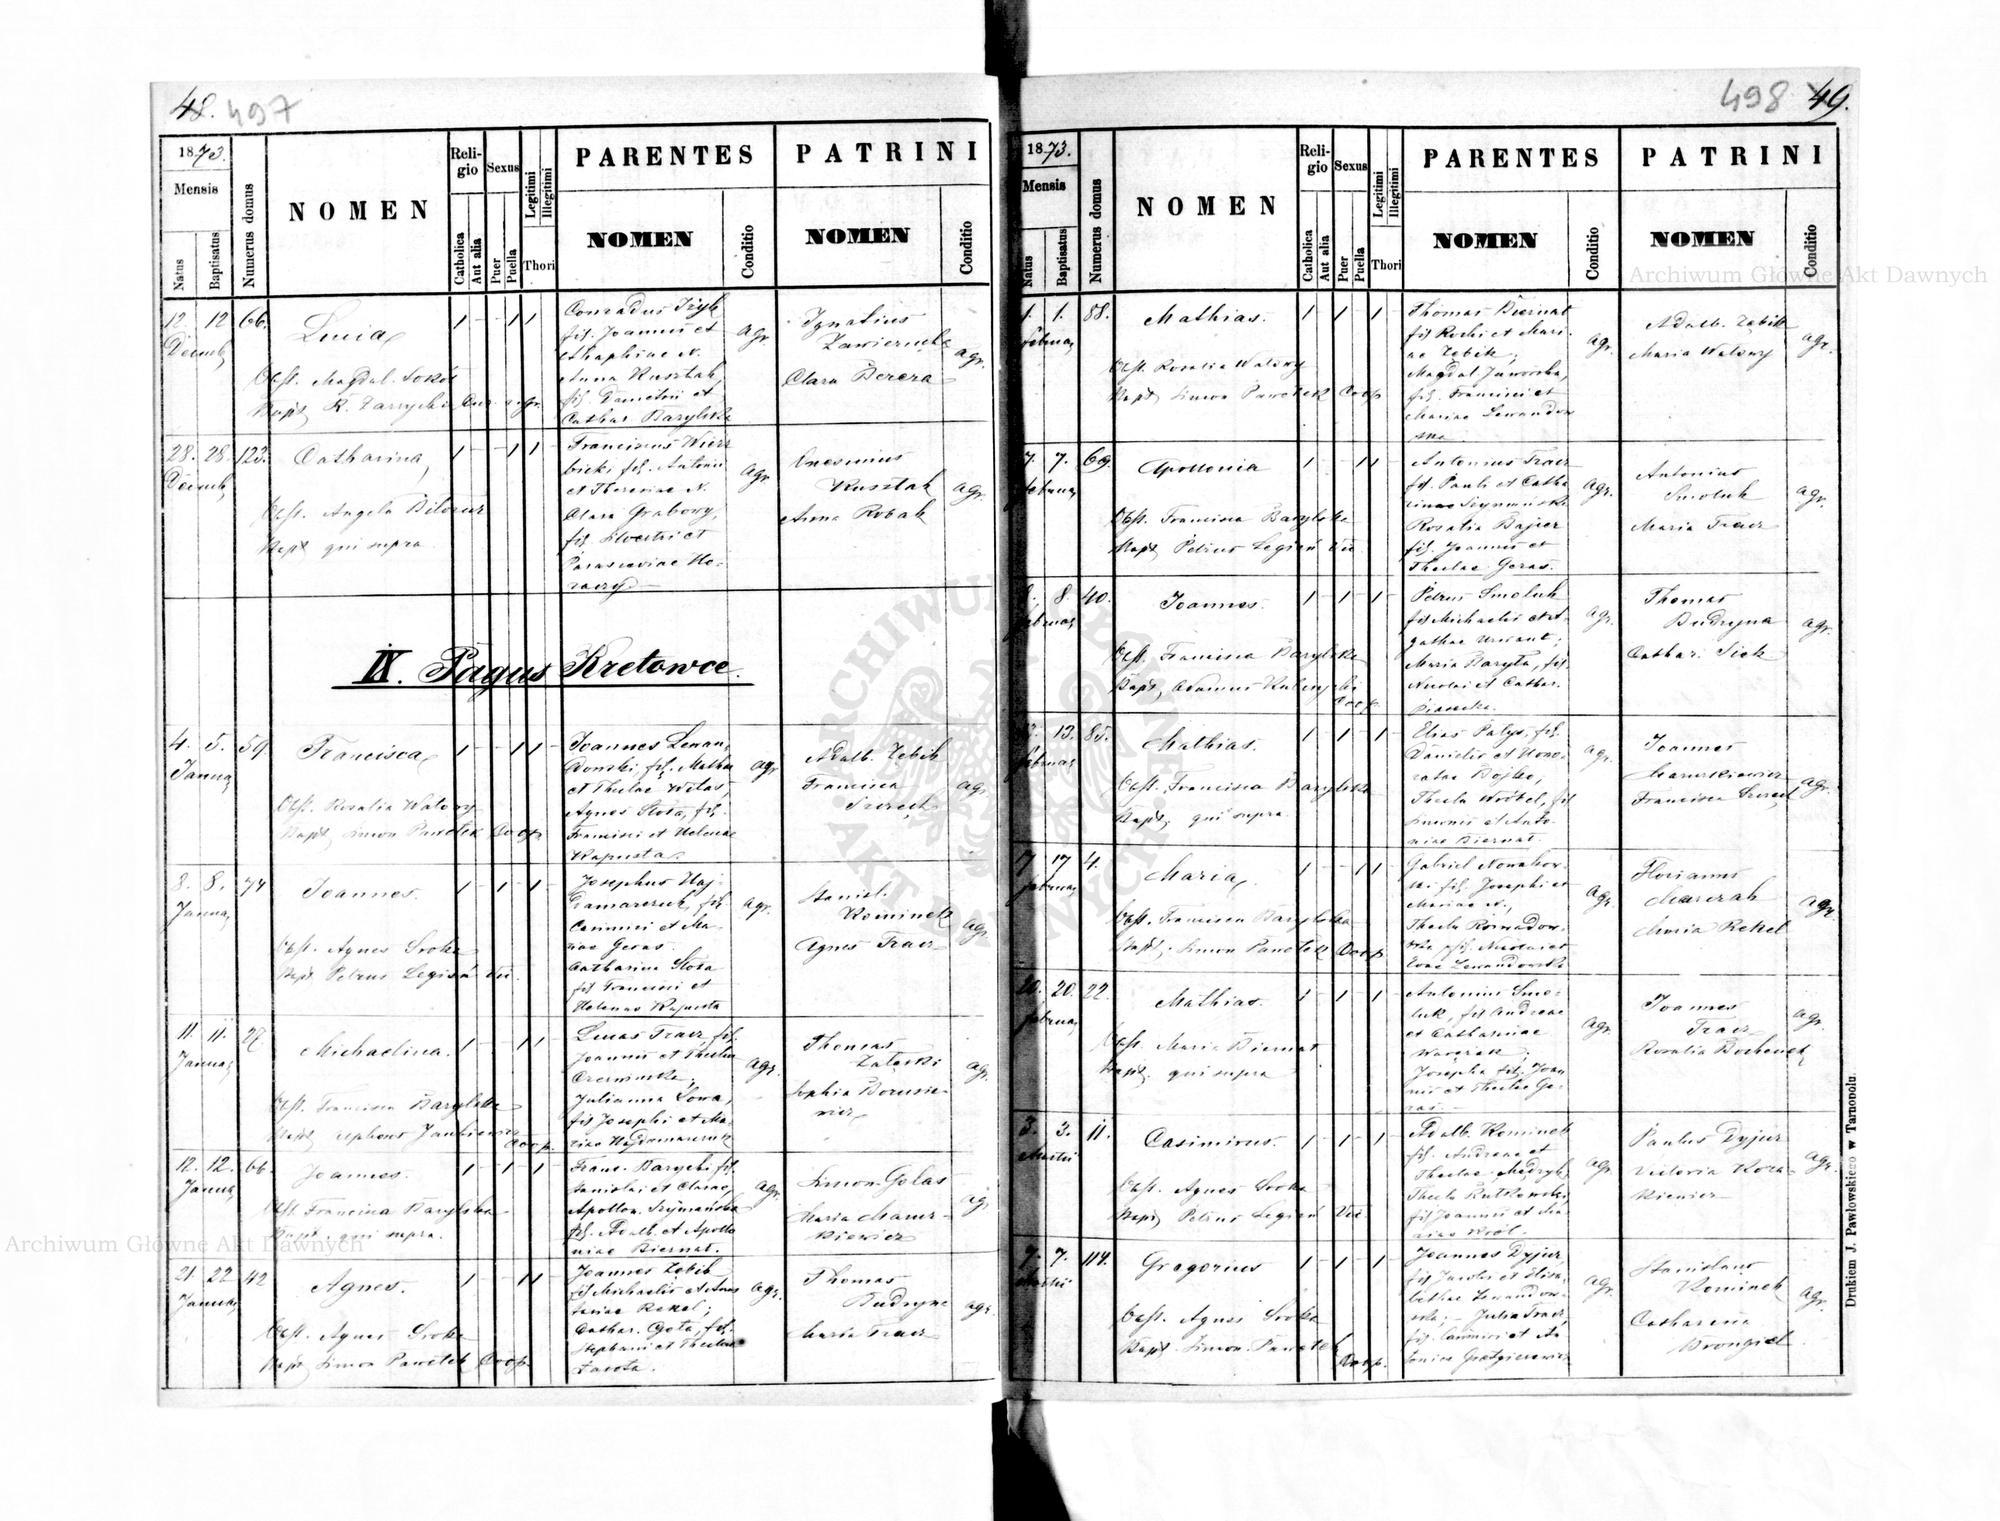 48. 497
1873.
Mensis
Natus
Baptisatus
Numerus domus
NOMEN
Religio
Catholica
Aut alia
Sexus
Puer
Puella
Legitimi
Illegitimi
Thori
PARENTES
NOMEN
Conditio
PATRINI
NOMEN
Conditio
12 12 66.
Decemb,
Lucia
Obst. Magdal. Sokół
Conradus
fil. Joannis et
Anna Kusztak,
fil. Demetrii et
Cathar. Barylska
agr.
Ignatius
Clara Bereza
agr.
28. 28. 123.
Decemb,
Catharina,
Obst. Angela
Bapt. qui supra
Franciscus Wierz
bicki fil. Antonii
et Theresiae N.
Clara Grabowy,
fil. Silvestri et
Parasceviae Ho-
agr.
Kusztak
Anna Robak
agr.
IX. Pagus Kretowce.
4. 5. 59
Janua,
Francisca
Obst. Rosalia Watowy
Bapt. Simon Pawełek Coop.
Joannes Lewan,
dowski, fil. Mathia
et Theclae Witas,
Agnes Stota, fil.
Francisci et Helenae
Kapusta.
agr
Adalb. Zębik
Francisca
agr
8. 8. 74
Janua,
Joannes.
Obst. Agnes Sroka
Bapt. Petrus Legień Vic.
Josephus Haj-
damaszczuk, fil.
Casimiri et Ma-
riae Geras.
Catharina Stota
fil Francisci et
Helenae Kapusta
agr.
Stanisl.
Kominek
Agnes Tracz
agr
11. 11. 27
Janua,
Michaelina.
Obst. Francisca Barylska
Coop.
Lucas Tracz, fil.
Joannis et Theclae
Czerwinska,
Julianna Sowa,
fil Josephi et Ma-
riae Hajdamaszczuk
agr.
Thomas
Zaleski
Sophia Borusie-
wicz
agr.
12. 12. 66.
Janua,
Joannes.
Obst. Francisca Barylska
Bapt. qui supra.
Franc. Barycki fil.
Stanislai et Clarae,
Apollon. Szymańska
fil. Adalb. et Apollo
niae Biernat.
agr.
Simon Golas
Maria Mazur-
kiewicz
agr
21. 22 42
Janua,
Agnes.
Obst. Agnes Sroka
Bapt. Simon Pawełek Coop.
Joannes Zębik
fil Michaelis et Anas
tasiae Rekel;
Cathar. Gota, fil.
Stephani et Theclae
agr.
Thomas
Budzyna
Maria Tracz
agr.
498 49.
1873.
Mensis
Natus
Baptisatus
Numerus domus
NOMEN
Religio
Catholica
Aut alia
Sexus
Puer
Puella
Legitimi
Illegitimi
Thori
PARENTES
NOMEN
Conditio
PATRINI
NOMEN
Conditio
1. 1. 88.
Februa,
Mathias.
Obst. Rosalia Watowy
Bapt. Simon Pawełek Coop
Thomas Biernat
fil Rochi et Mari-
ae Zębik,
Magdal Jaworska,
fil. Francisci et
Mariae Lewandow
ska
agr.
Adalb. Zębik
Maria Watowy
agr.
7. 7. 69.
Februa,
Apollonia
Obst. Francisca Barylska
Bapt. Petrus Legień Vic.
Antonius Tracz
fil. Pauli et Catha
rinae Szymańska
Rosalia Bajer
fil. Joannis et
Theclae Geras.
agr.
Antonius
Smoluk
Maria Tracz
agr.
8. 8. 40.
Februa,
Joannes.
Obst. Francisca Barylska
Coop.
Petrus Smoluk
fil Michaelis et A-
gathae
Maria Baryła, fil.
Nicolai et Cathar.
agr.
Thomas
Budzyna
Cathar.
agr.
13. 85.
Februa,
Mathias.
Obst. Francisca Barylska
Bapt. qui supra
Elias Patys, fil.
Danielis et Hono-
ratae Bojko,
Thecla Wróbel, fil
Simonis et Anto-
niae Biernat.
agr.
Joannes
Mazurkiewicz
Francisca
agr.
17 17 4.
Februa,
Maria
Obst. Francisca Barylska
Bapt. Simon Pawełek Coop
Gabriel Nowakow-
ski fil. Josephi et
Mariae N.,
Thecla
ska fil. Nicolai et
Evae Lewandowska
agr.
Florianus
Maria Rekel
agr.
20. 20. 22.
Februa,
Mathias.
Obst. Maria Biernat
Bapt. qui supra
Antonius Smo-
luk, fil Andreae
et Catharinae
Josepha fil. Joan
nis et Theclae Ge-
ras.
agr.
Joannes
Tracz
Rosalia Bochenek
agr.
3. 3. 11.
Martii
Casimirus.
Obst. Agnes Sroka
Bapt. Petrus Legień Vic.
Adalb. Kominek
fil. Andreae et
Theclae
Thecla Rutkowska,
fil Joannis et Ma-
riae Król.
agr.
Paulus Dyjur
Victoria Koza-
kiewicz
agr.
7. 7. 114.
Martii
Gregorius
Obst. Agnes Sroka
Bapt. Simon Pawełek
Coop.
Joannes Dyjur,
fil Jacobi et Elisa-
bethae Lewandow-
ska; - Julia Tracz,
fil. Casimiri et An
toniae
agr.
Stanislaus
Kominek
Catharina
Brongiel
agr.
Drukiem J. Pawłowskiego w Tarnopolu.
Archiwum Główne Akt Dawnych
Archiwum Główne Akt Dawnych